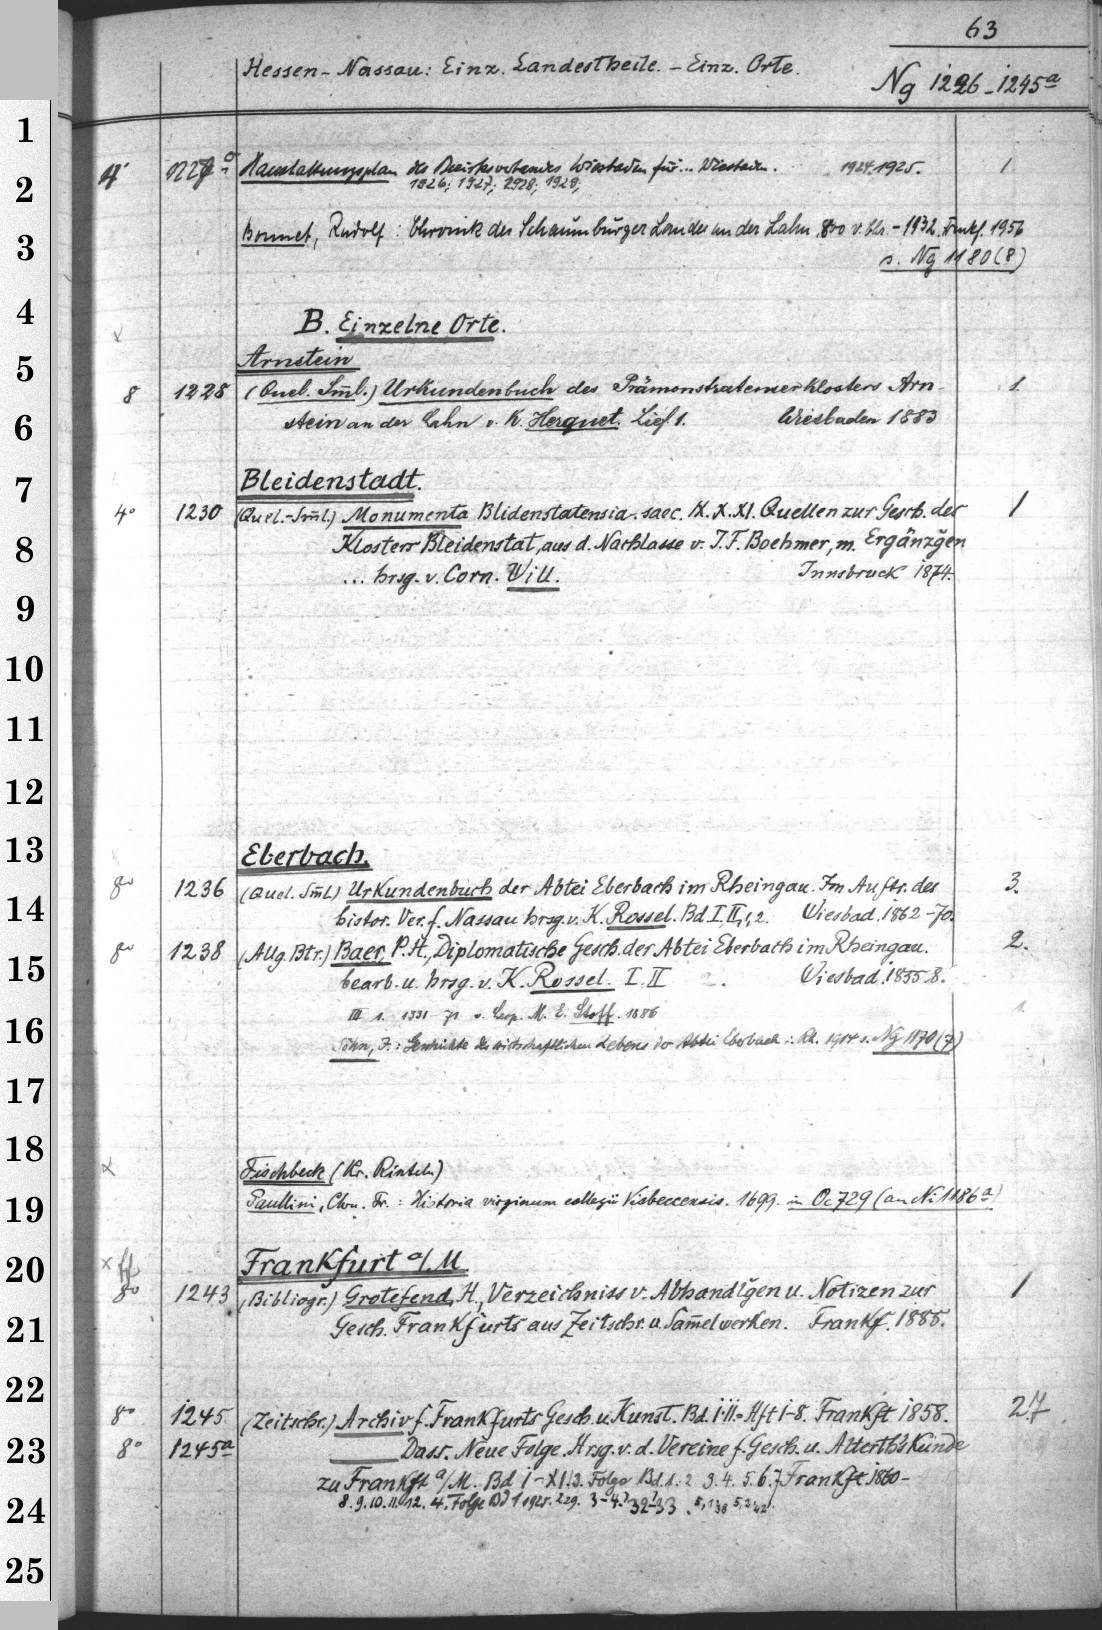 63
Hessen-Nassau: Einz. Landestheile. - Einz. Orte.
Ng 1226-1245a
1
4° 1227a Haushaltungsplan des Bezirksverbandes Wiesbaden für... Wiesbaden. 1924.1925. 1
2
1926; 1927; 1928; 1929;
3
Bonnet, Rudolf: Chronik des Schaumburger Landes an der Lahn 800 v. Chr. - 1932. Frankf. 1956
s. Ng 1180(8)
4
B. Einzelne Orte.
5
Arnstein
8 1228 (Quel. Sm̄l.) Urkundenbuch des Prämonstratenserklosters Arn- 1.
6
stein an der Lahn v. K. Herquet. Lief. 1. Wiesbaden 1883
7
Bleidenstadt.
4° 1230 (Quel.-Sm̄l) Monumenta Blidenstatensia. saec. IX. X. XI. Quellen zur Gesch. des 1
8
Klosters Bleidenstat, aus d. Nachlasse v. J. F. Boehmer, m. Ergänzg̃en
... hrsg. v. Corn. Will. Innsbruck 1874.
9
10
11
12
13
Eberbach.
8° 1236 (Quel. Sm̄l) Urkundenbuch der Abtei Eberbach im Rheingau. Im Auftr. des 3.
14
histor. Ver. f. Nassau hrsg. v. K. Rossel. Bd I, II,1,2. Wiesbad. 1862-70.
8° 1238 (Allg. Btr.) Baer, P. H., Diplomatische Gesch. der Abtei Eberbach im Rheingau. 2.
15
bearb. u. hrsg. v. K. Rossel. I. II Wiesbad. 1855-8.
III 1. 1331-71 v. M. E. Stoff. 1886 1.
16
Söhn, J.: Geschichte des wirtschaftlichen Lebens der Abtei Eberbach i. Rh. 1914 s. Ng 1170(7)
17
18
Fischbeck (Kr. Rinteln)
19
Paullini, Chn. Fr.: Historia virginum collegii Visbeccensis. 1699. in Oc 729 (an Ni 1186a)
20
Frankfurt a/M.
8° 1243 (Bibliogr.) Grotefend, H., Verzeichniss v. Abhandlg̃en u. Notizen zur 1
21
Gesch. Frankfurts aus Zeitschr. u. Sam̄elwerken. Frankf. 1885.
22
8° 1245 (Zeitschr.) Archiv f. Frankfurts Gesch. u. Kunst. Bd. I-II = Hft 1-8. Frankft 1858. 27
23
8° 1245a ___ Dass. Neue Folge. Hrsg. v. d. Vereine f. Gesch. u. Alterthskunde
zu Frankft a/M. Bd I-XI. 3. Folge Bd. 1. 2 3. 4. 5. 6. 7. Frankft 1860-
24
8. 9. 10. 11. 12. 4. Folge Bd 1 1925. 2 29. 3-4. 32-33. 5,1 38 5,2 42
25